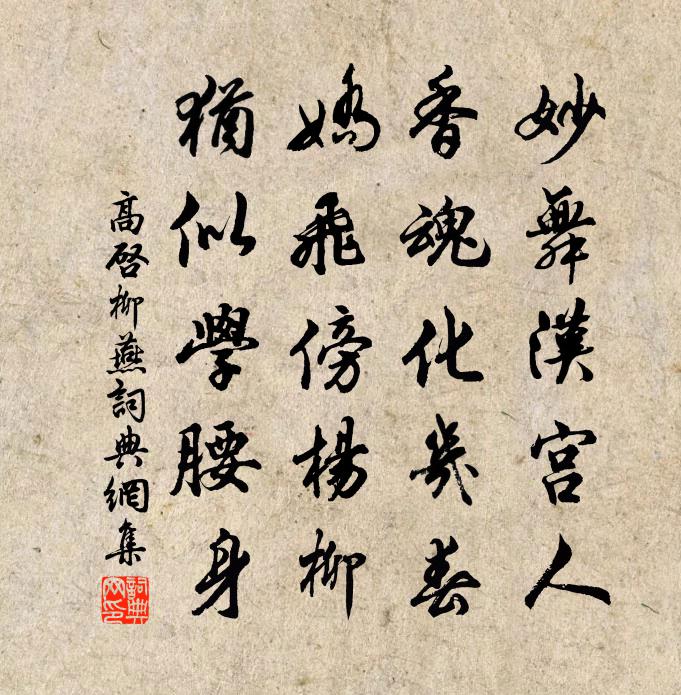 妙舞漢宮人
香魂化幾春
嬌飛傍楊柳
猶似學腰身
高啓柳燕詞典網集
詞典網印